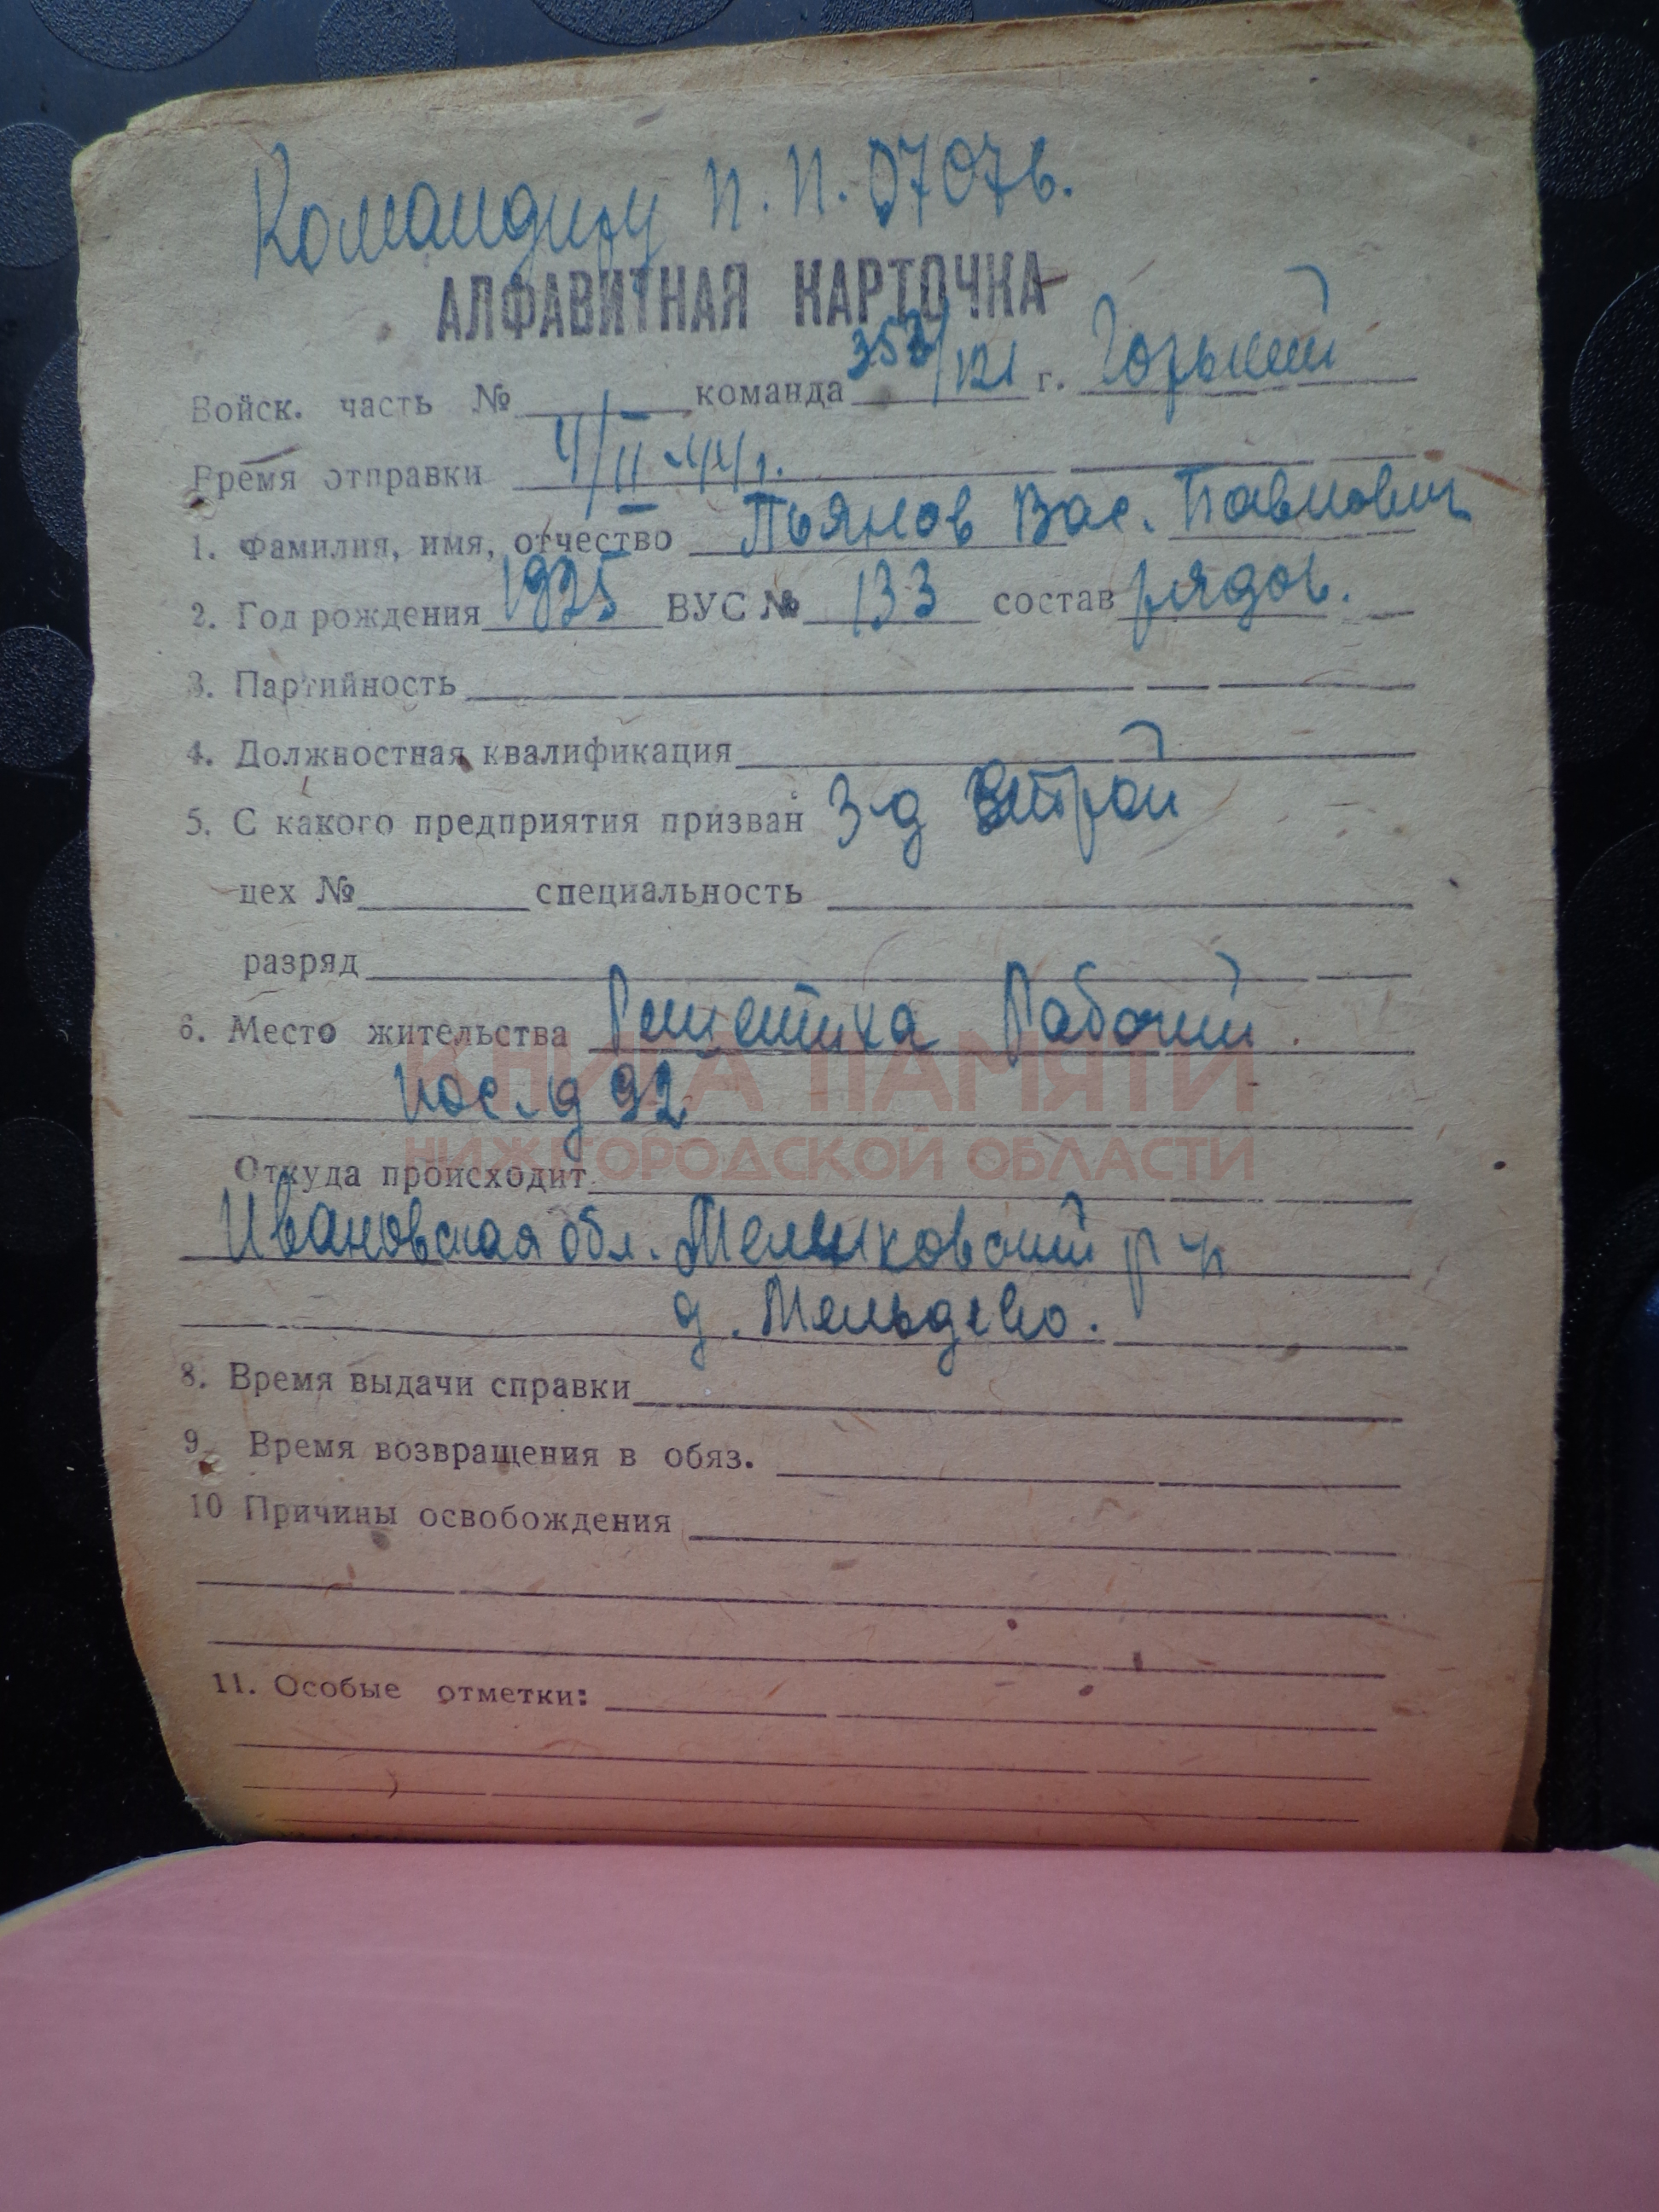 Командиру п.п. 07076.
АЛФАВИТНАЯ КАРТОЧКА
Войск. часть № команда /121 г. Горький
Время отправки 4/II-44г.
1. Фамилия, имя, отчество Пьянов Вас. Павлович
2. Год рождения 1925 ВУС № 133 состав рядов.
3. Партийность
4. Должностная квалификация
5. С какого предприятия призван З-д
цех № специальность
разряд
6. Место жительства Решетиха Рабочий
пос. д 92
КНИГА ПАМЯТИ
НИЖГОРОДСКОЙ ОБЛАСТИ
Откуда происходит
Ивановская обл. р-н
д.
8. Время выдачи справки
9. Время возвращения в обяз.
10 Причины освобождения
11. Особые отметки: